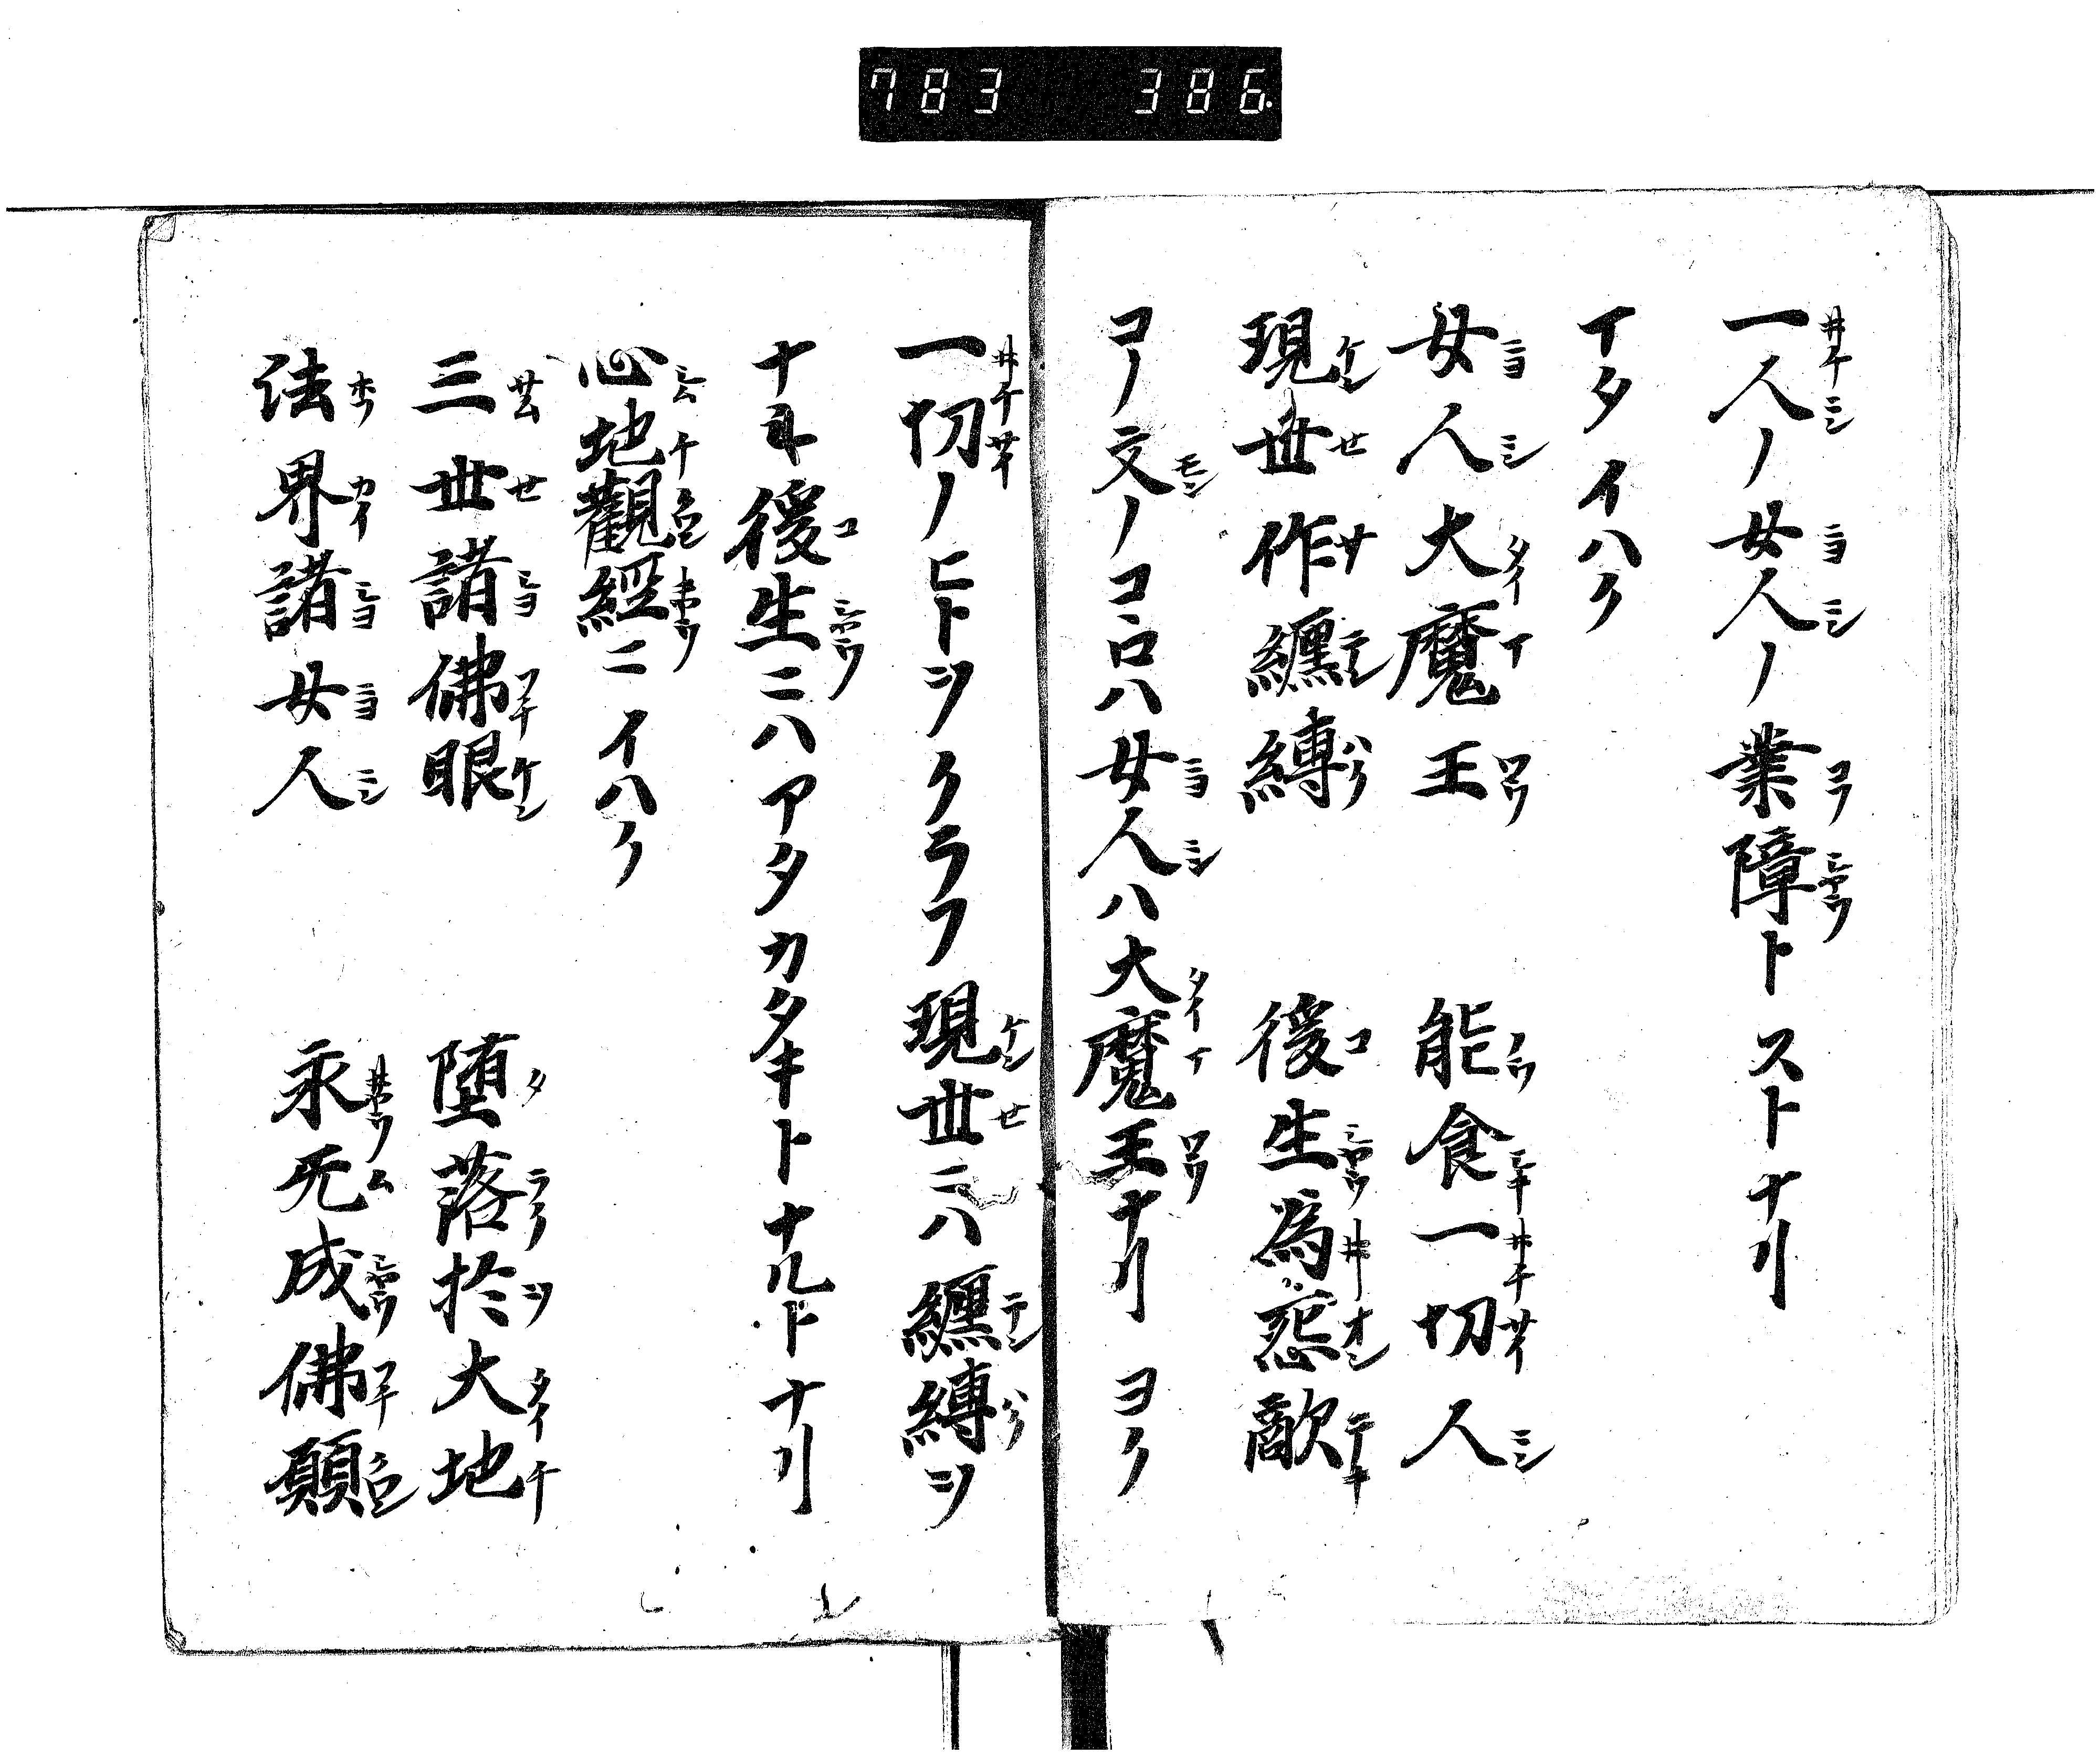 783 386
一人ノ女人ノ業障トストナリ
イタイハク
女人大魔王 能食一切人
現世作纏縛 後生為怨敵
コノ文ノコヽロハ女人ハ大魔王ナリヨク
一切ノヒトヲクラフ現世ニハ纏縛ヲ
ナス後生ニハアタカタキトナルトナリ
心地觀經ニイハク
三世諸佛眼 堕落於大地
法界諸女人 永无成佛願